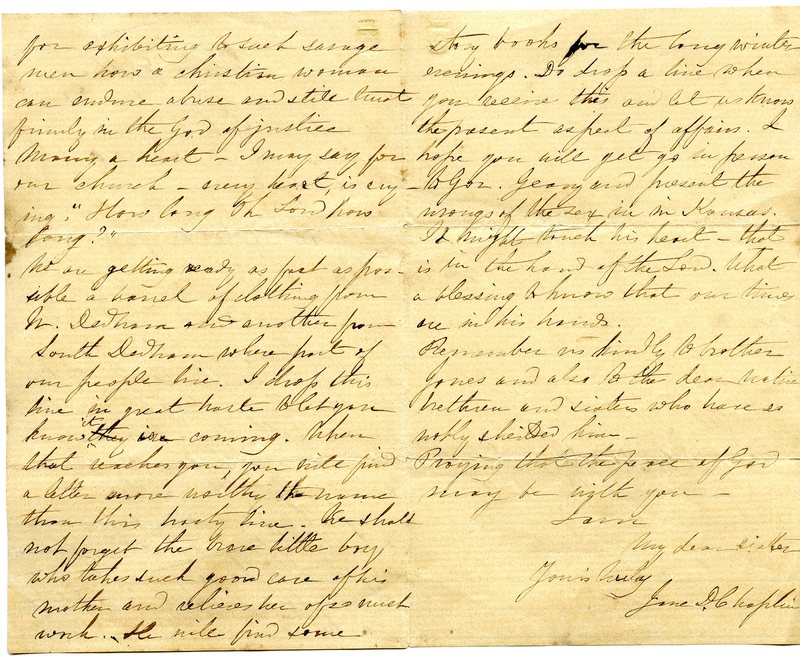 for exhibiting to such savage
men how a christian woman
can endure abuse and still trust
firmly in the God of justice
Many a heart – I may say for
our church – every heart, is cry-
ing, "How long Oh Lord how
long?"
We are getting ready as fast as pos-
sible a barrel of clothing from
W. Dedham and another from
South Dedham where part of
our people live. I drop this
line in great haste to let you
know it is coming. When
that reaches you, you will find
a letter more worthy the name
than this hasty line. We shall
not forget the brave little boy
who takes such good care of his
mother and relieves her of so much
work. He will find some
story books for the long winter
evenings. Do drop a line when
you receive this and let us know
the present aspect of affairs. I
hope you will get go in person
to Gov. Geary and present the
wrongs of the sex in in Kansas.
It might touch his heart – that
is in the hand of the Lord. What
a blessing to know that our times
are in his hands.
Remember us kindly to brother
Jones and also to the dear native
brethren and sisters who have so
nobly sheilded him –
Praying that the peace of God
may be with you –
I am
My dear sister
Yours truly
Jane D. Chaplin